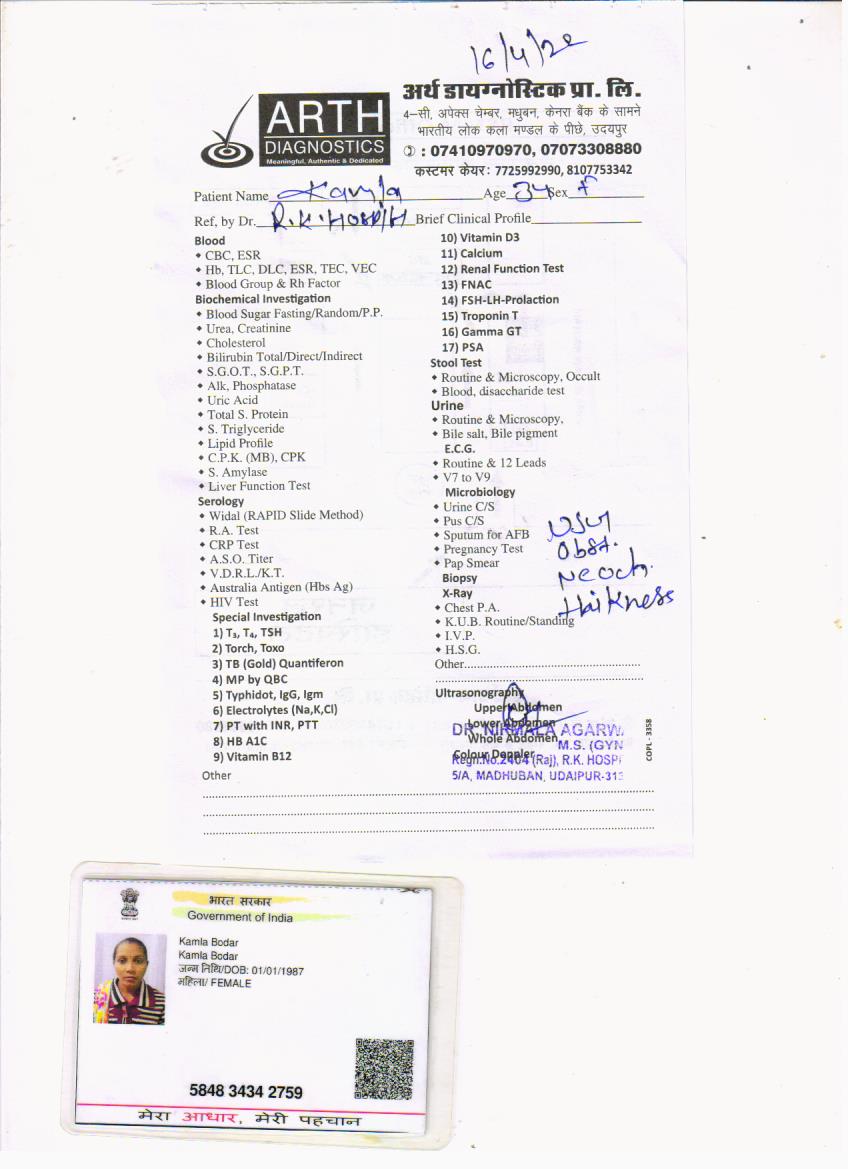 16/4/22
ARTH
DIAGNOSTICS
Meaningful, Authentic & Dedicated
अर्थ डायग्नोस्टिक प्रा. लि.
4–सी, अपेक्स चेम्बर, मधुबन, केनरा बैंक के सामने
भारतीय लोक कला मण्डल के पीछे, उदयपुर
: 07410970970, 07073308880
कस्टमर केयर: 7725992990, 8107753342
Patient Name Kamla Age 34 Sex F
Ref, by Dr. R.K. Brief Clinical Profile
Blood
• CBC, ESR
• Hb, TLC, DLC, ESR, TEC, VEC
• Blood Group & Rh Factor
Biochemical Investigation
• Blood Sugar Fasting/Random/P.P.
• Urea, Creatinine
• Cholesterol
• Bilirubin Total/Direct/Indirect
• S.G.O.T., S.G.P.T.
• Alk, Phosphatase
• Uric Acid
• Total S. Protein
• S. Triglyceride
• Lipid Profile
• C.P.K. (MB), CPK
• S. Amylase
• Liver Function Test
Serology
• Widal (RAPID Slide Method)
• R.A. Test
• CRP Test
• A.S.O. Titer
• V.D.R.L./K.T.
• Australia Antigen (Hbs Ag)
• HIV Test
Special Investigation
1) T₃, T₄, TSH
2) Torch, Toxo
3) TB (Gold) Quantiferon
4) MP by QBC
5) Typhidot, IgG, Igm
6) Electrolytes (Na,K,Cl)
7) PT with INR, PTT
8) HB A1C
9) Vitamin B12
Other
10) Vitamin D3
11) Calcium
12) Renal Function Test
13) FNAC
14) FSH-LH-Prolaction
15) Troponin T
16) Gamma GT
17) PSA
Stool Test
• Routine & Microscopy, Occult
• Blood, disaccharide test
Urine
• Routine & Microscopy,
• Bile salt, Bile pigment
E.C.G.
• Routine & 12 Leads
• V7 to V9
Microbiology
• Urine C/S
• Pus C/S
• Sputum for AFB
• Pregnancy Test
• Pap Smear
Biopsy
X-Ray
• Chest P.A.
• K.U.B. Routine/Standing
• I.V.P.
• H.S.G.
Other
USG
Obst.
Thikness
Ultrasonography
Upper Abdomen
Lower Abdomen
Whole Abdomen
Colour Doppler
DR. NIRMALA AGARW
M.S. (GYN
Regn.No.2464 (Raj), R.K. HOSPI
5/A, MADHUBAN, UDAIPUR-313
COPL - 3358
भारत सरकार
Government of India
Kamla Bodar
Kamla Bodar
जन्म तिथि/DOB: 01/01/1987
महिला/ FEMALE
5848 3434 2759
मेरा आधार, मेरी पहचान